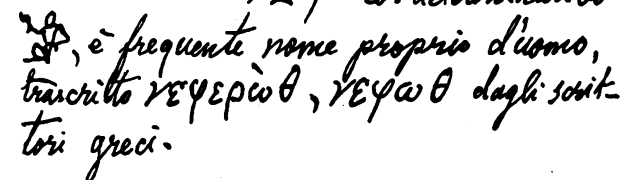 , è frequente nome proprio d'uomo,
trascritto νεφερὼθ, νεφωθ dagli scrit-
tori greci.